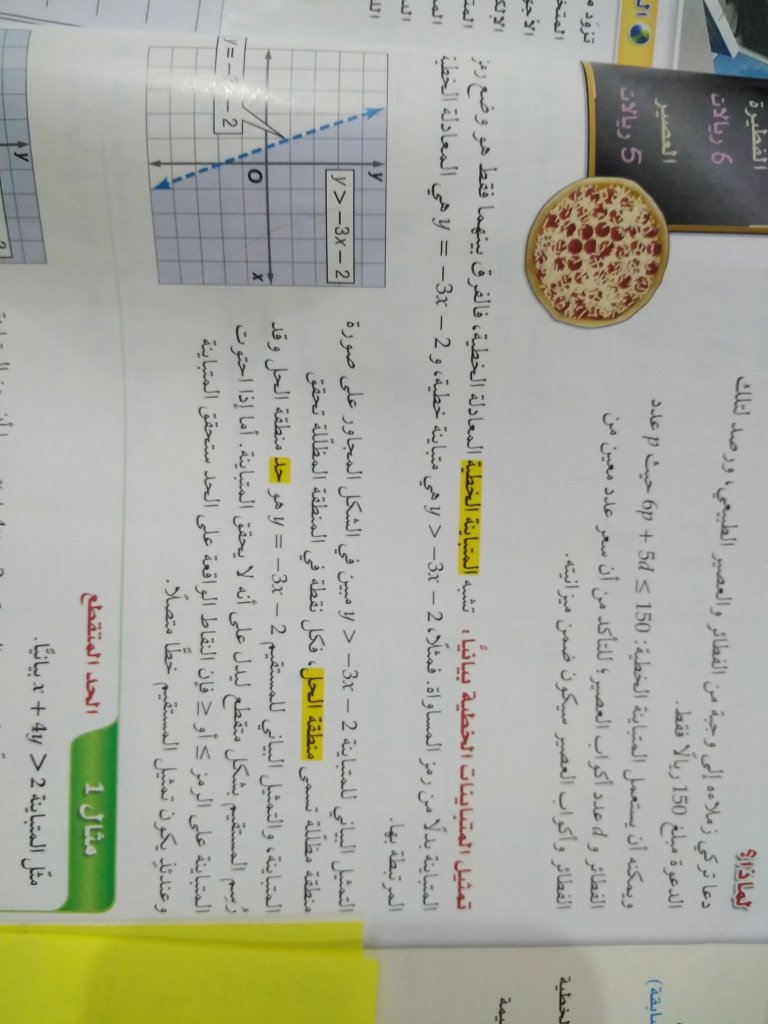 الفطيرة
6 ريالات
العصير
5 ريالات
لماذا؟
دعا تركي زملاءه إلى وجبة من الفطائر والعصير الطبيعي، ورصد لتلك
الدعوة مبلغ 150 ريالًا فقط.
ويمكنه أن يستعمل المتباينة الخطية: 6p + 5d ≤ 150 حيث p عدد
الفطائر و d عدد أكواب العصير؛ للتأكد من أن سعر عدد معين من
الفطائر وأكواب العصير سيكون ضمن ميزانيته.
تمثيل المتباينات الخطية بيانيًّا: تشبه المتباينة الخطية المعادلة الخطية، فالفرق بينهما فقط هو وضع رمز
المتباينة بدلًا من رمز المساواة. فمثلًا، y > −3x − 2 هي متباينة خطية، و y = −3x − 2 هي المعادلة الخطية
المرتبطة بها.
التمثيل البياني للمتباينة y > −3x − 2 مبين في الشكل المجاور على صورة
منطقة مظللة تسمى منطقة الحل، فكل نقطة في المنطقة المظللة تحقق
المتباينة، والتمثيل البياني للمستقيم y = −3x − 2 هو حد منطقة الحل وقد
رُسم المستقيم بشكل متقطع ليدل على أنه لا يحقق المتباينة. أما إذا احتوت
المتباينة على الرمز ≤ أو ≥ فإن النقاط الواقعة على الحد ستحقق المتباينة
وعندئذٍ يكون تمثيل المستقيم خطًّا متصلًا.
y
y > −3x − 2
O
x
مثال 1
الحد المتقطع
مثّل المتباينة x + 4y > 2 بيانيًّا.
y